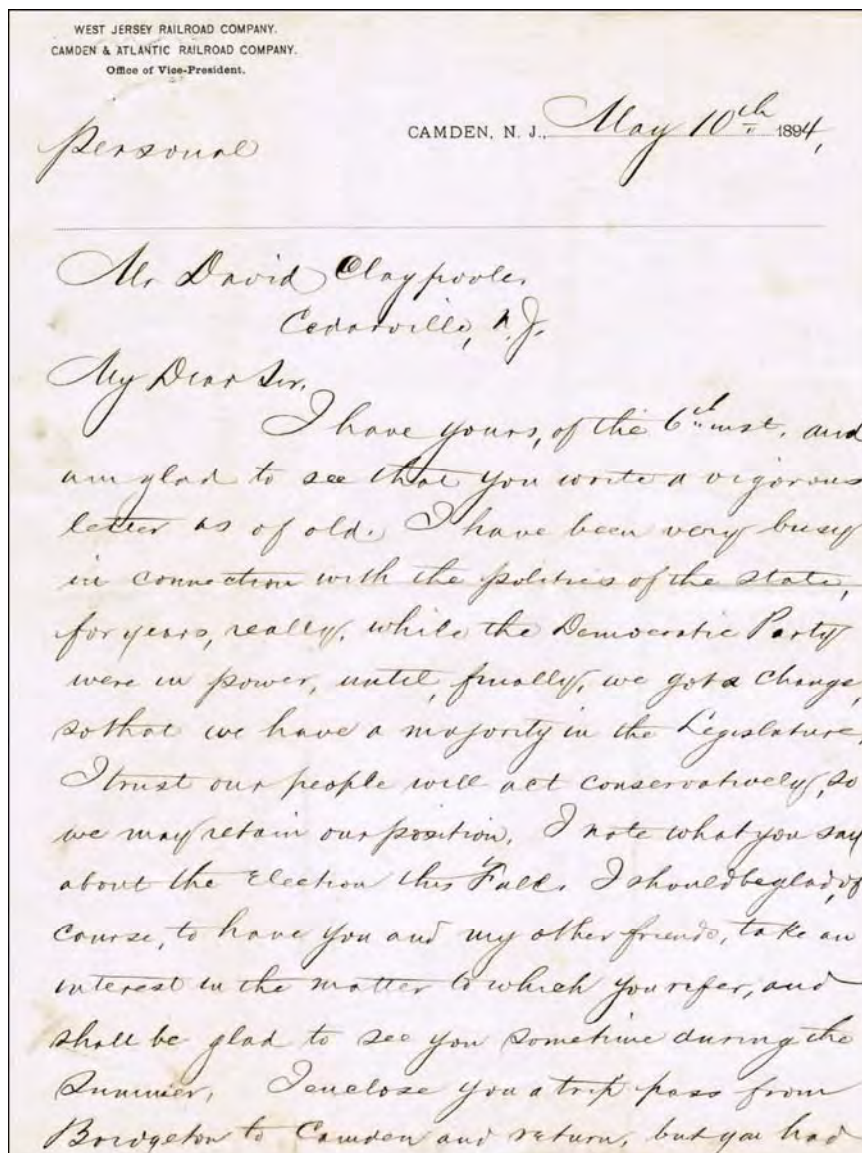 WEST JERSEY RAILROAD COMPANY.
CAMDEN & ATLANTIC RAILROAD COMPANY.
Office of Vice-President.
CAMDEN, N. J., May 10th 1894,
Personal
Mr David Claypoole,
Cedarville, N. J.
My Dear Sir.
I have yours, of the 6th inst. and
am glad to see that you write a vigorous
letter as of old. I have been very busy
in connection with the politics of the state,
for years, really, while the Democratic Party
were in power, until, finally, we got a change,
so that we have a majority in the Legislature.
I trust our people will act conservatively, so
we may retain our position. I note what you say
about the Election this Fall. I should be glad, of
course, to have you and my other friends, take an
interest in the matter to which you refer, and
shall be glad to see you sometime during the
Summer. I enclose you a trip pass from
Bridgeton to Camden and return, but you had